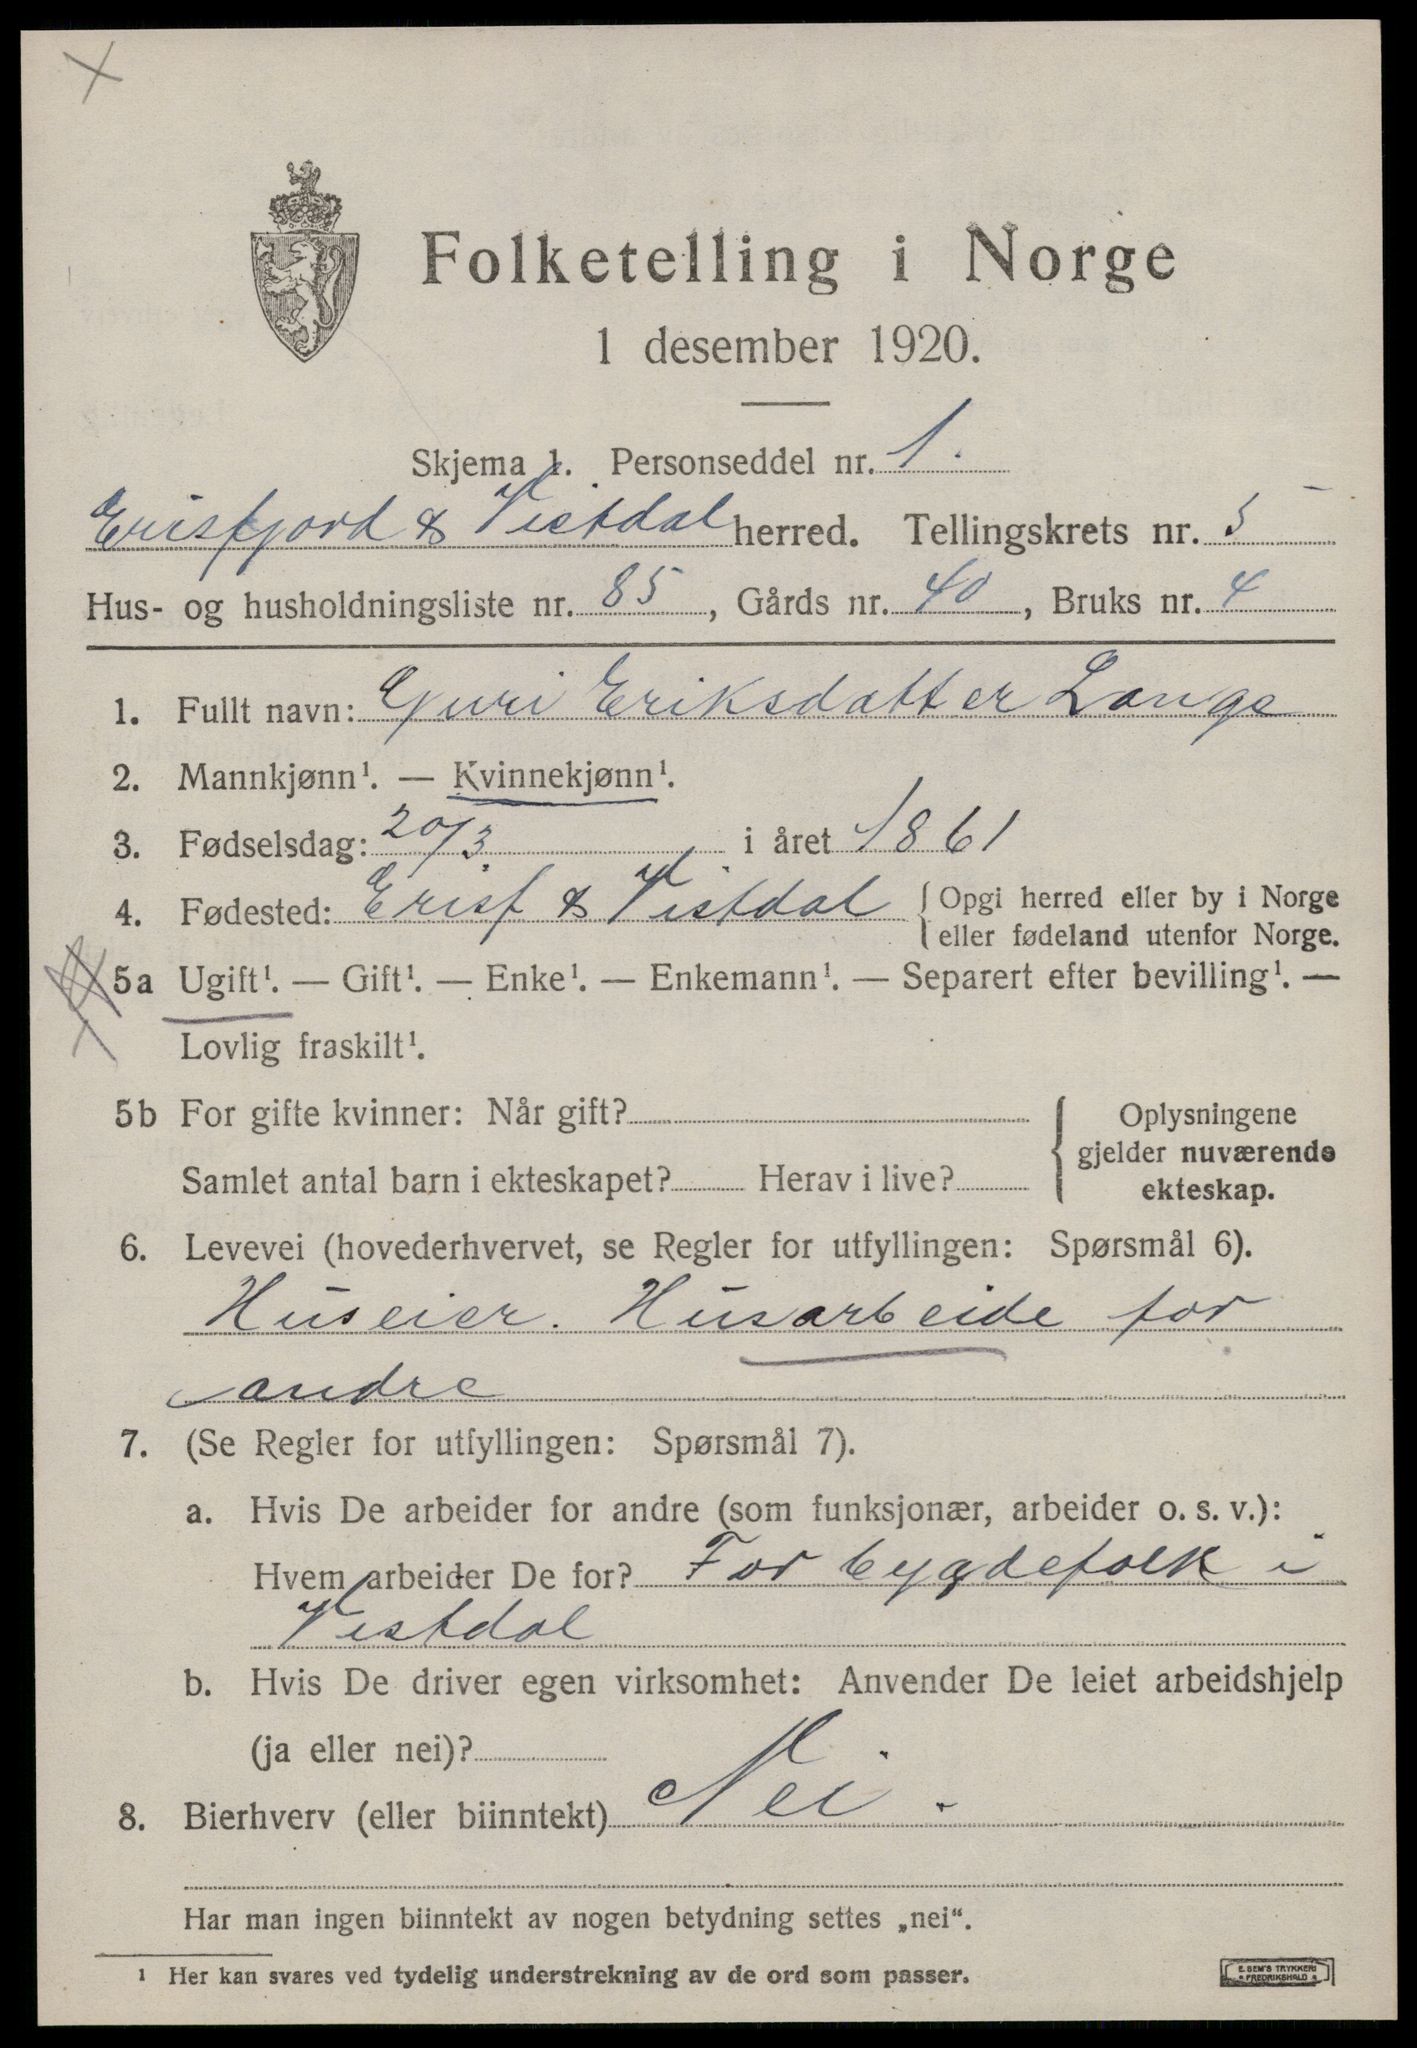 Folketelling i Norge
1 desember 1920.
Skjema 1. Personseddel nr. 1.
Erisfjord & Vistdal herred. Tellingskrets nr. 5
Hus- og husholdningsliste nr. 85, Gårds nr. 40, Bruks nr. 4
1. Fullt navn: Guri Eriksdatter Lange
2. Mannkjønn¹. — Kvinnekjønn¹.
3. Fødselsdag: 20/3 i året 1861
4. Fødested: Erisf & Vistdal { Opgi herred eller by i Norge
eller fødeland utenfor Norge.
5a Ugift¹. — Gift¹. — Enke¹. — Enkemann¹. — Separert efter bevilling¹. —
Lovlig fraskilt¹.
5b For gifte kvinner: Når gift?
Samlet antal barn i ekteskapet? Herav i live?
Oplysningene
gjelder nuværende
ekteskap.
6. Levevei (hovederhvervet, se Regler for utfyllingen: Spørsmål 6).
Huseier. Husarbeide for
andre
7. (Se Regler for utfyllingen: Spørsmål 7).
a. Hvis De arbeider for andre (som funksjonær, arbeider o. s. v.):
Hvem arbeider De for? For bygdefolk i
Vistdal
b. Hvis De driver egen virksomhet: Anvender De leiet arbeidshjelp
(ja eller nei)?
8. Bierhverv (eller biinntekt) Nei.
Har man ingen biinntekt av nogen betydning settes „nei“.
¹ Her kan svares ved tydelig understrekning av de ord som passer.
E. SEM'S TRYKKERI
FREDRIKSHALD